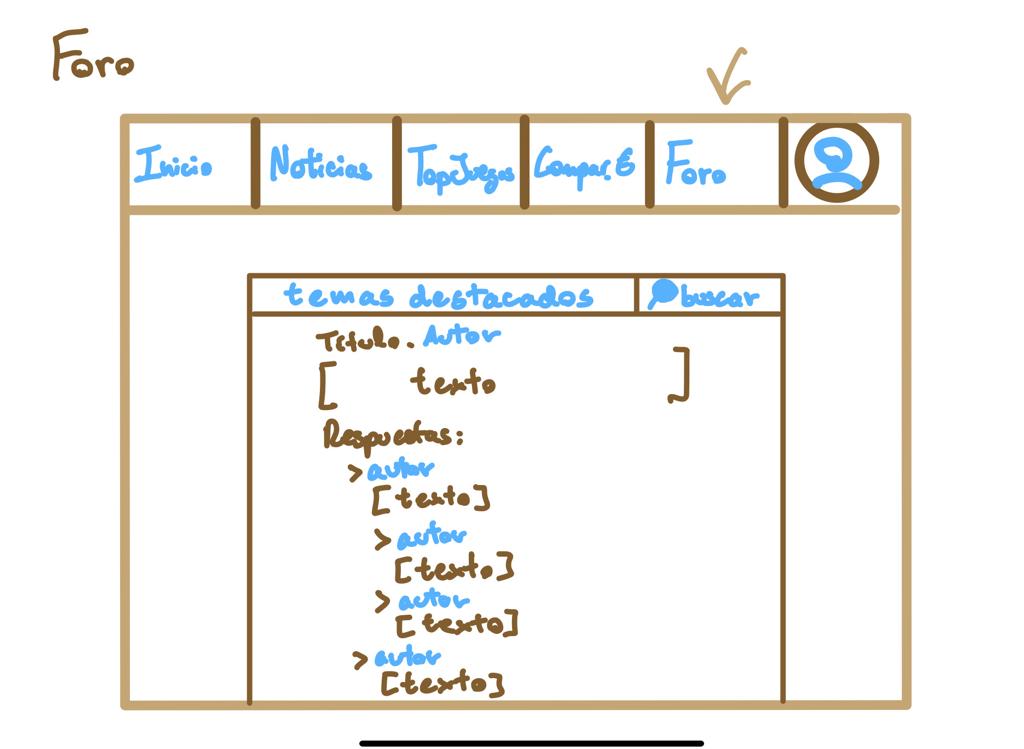 Foro
Inicio Noticias TopJuegos Compar.E Foro
temas destacados buscar
Título. Autor
[ texto ]
Respuestas:
> autor
[texto]
> autor
[texto]
> autor
[texto]
> autor
[texto]